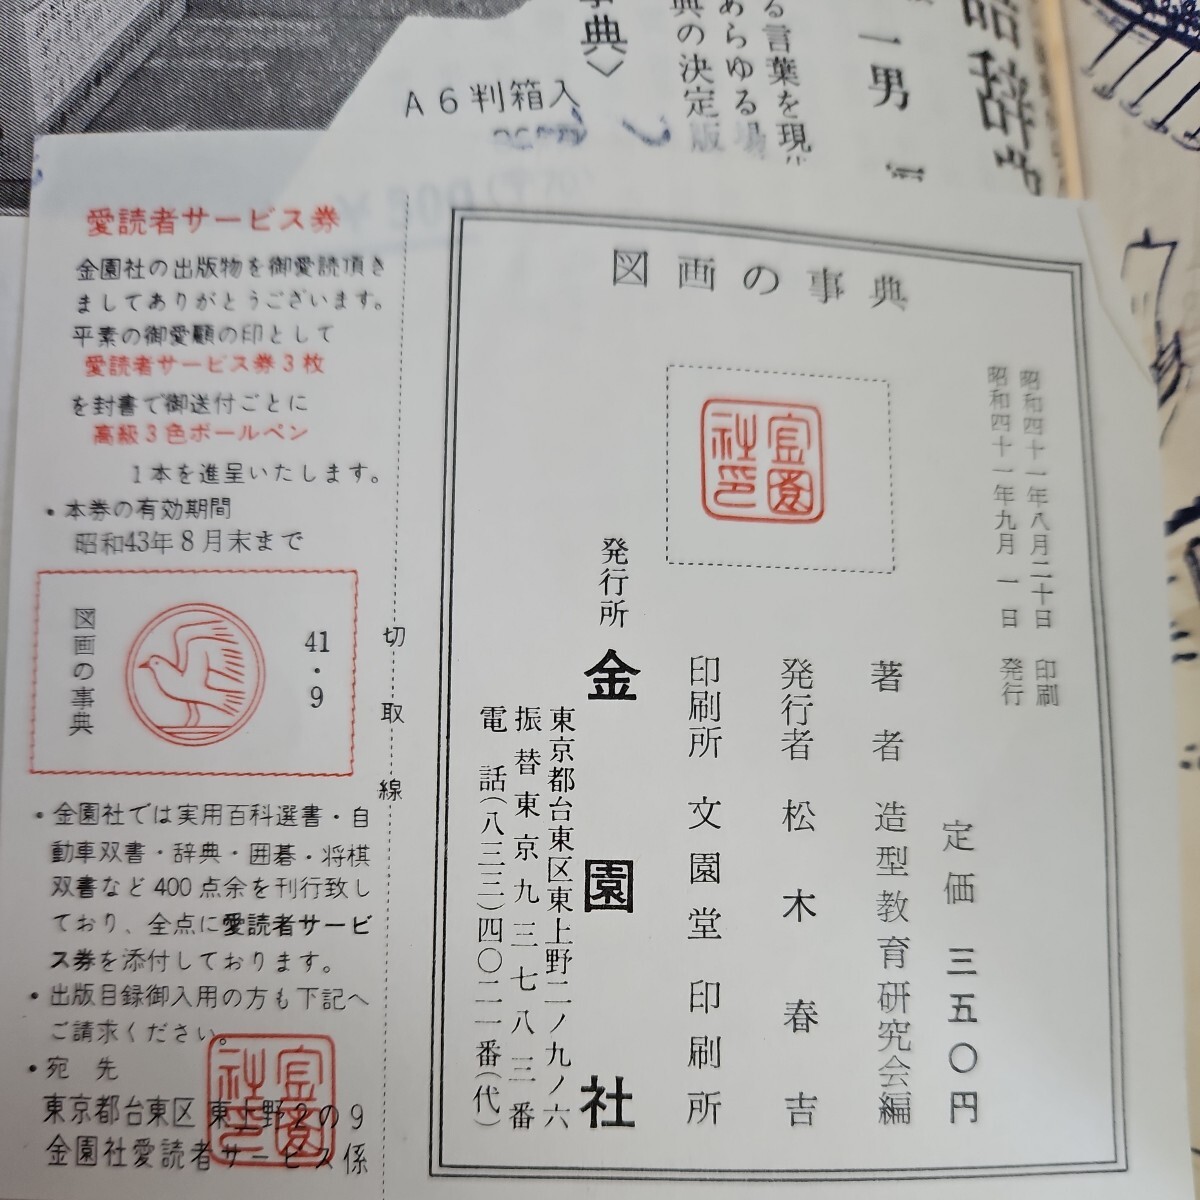 事典〉
A6判箱入
る言葉を現
あらゆる場
典の決定版
一男
辞典
愛読者サービス券
金園社の出版物を御愛読頂き
ましてありがとうございます。
平素の御愛顧の印として
愛読者サービス券3枚
を封書で御送付ごとに
高級3色ボールペン
1本を進呈いたします。
・本券の有効期間
昭和43年8月末まで
図画の事典
41・9
・金園社では実用百科選書・自
動車双書・辞典・囲碁・将棋
双書など400点余を刊行致し
ており、全点に愛読者サービ
ス券を添付しております。
・出版目録御入用の方も下記へ
ご請求ください。
・宛先
東京都台東区東上野2の9
金園社愛読者サービス係
金園社印
切取線
図画の事典
金園社印
昭和四十一年八月二十日 印刷
昭和四十一年九月一日 発行
定価 三五〇円
著者 造型教育研究会編
発行者 松木春吉
印刷所 文園堂印刷所
発行所 金園社
東京都台東区東上野二ノ九ノ六
振替東京九三七八三番
電話(八三三)四〇二一番(代)